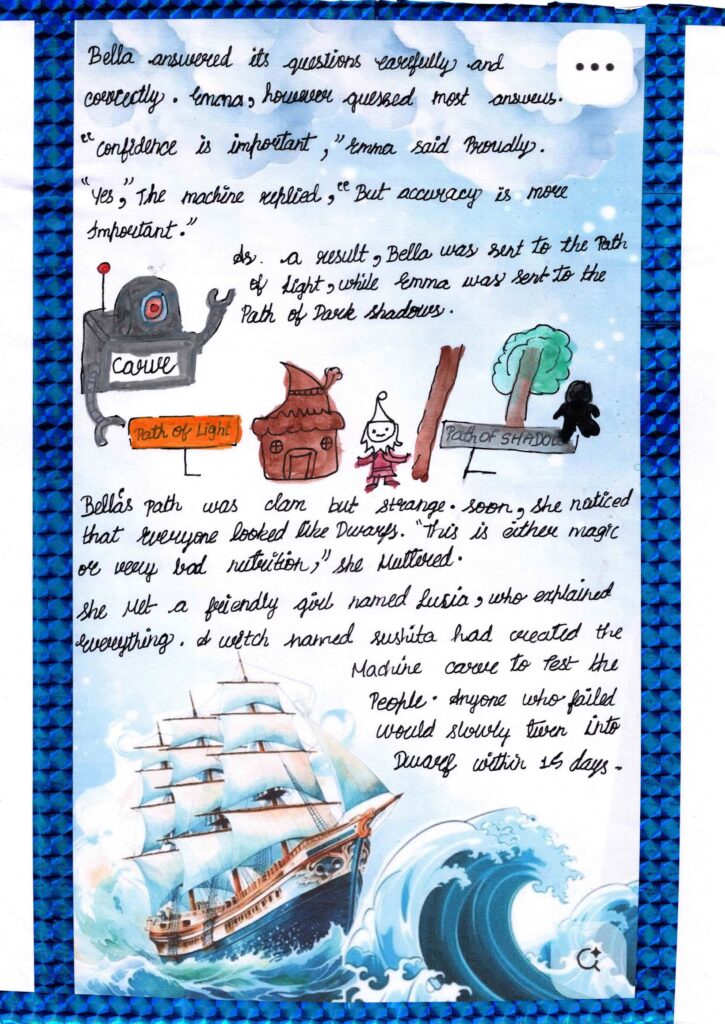 Bella answered its questions carefully and
correctly. Emma, however guessed most answers.
"Confidence is important," Emma said Proudly.
"Yes," The machine replied, "But accuracy is more
Important."
As. a result, Bella was sent to the Path
of Light, while Emma was sent to the
Path of Dark shadows.
Carve
Path of Light
Path of SHADOW
Bella's path was clam but strange. soon, she noticed
that everyone looked like Dwarfs. "This is either magic
or very bad nutrition," she Muttered.
She Met a friendly girl named Lusia, who explained
everything. A witch named sushita had created the
Machine carve to Test the
People. Anyone who failed
would slowly turn into
Dwarf within 15 days.